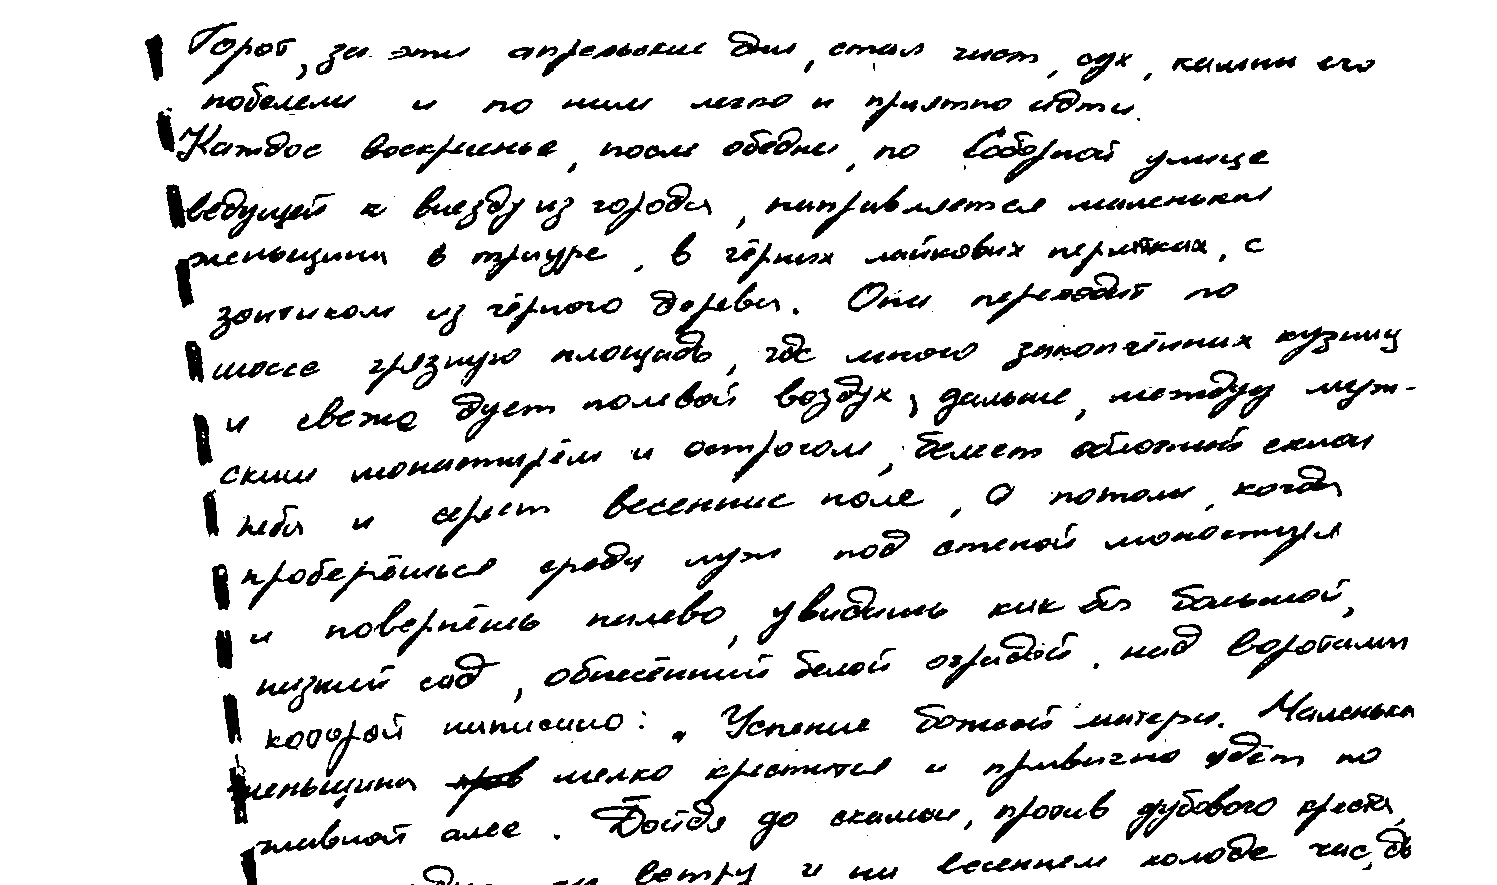 Город, за эти апрельские дни, стал чист, сух, камни его
побелели и по ним легко и приятно идти.
Каждое воскресенье, после обедни, по Соборной улице
ведущей к выезду из города, направляется маленькая
женьщина в трауре, в чёрных лайковых перчатках, с
зонтиком из чёрного дерева. Она переходит по
шоссе грязную площадь, где много закопчённых кузниц
и свежо дует полевой воздух, дальше, между муж-
ским монастырём и острогом, белеет облочный склон
неба и сереет весеннее поле, А потом, когда
проберёшься среди луж под стеной монастыря
и повернёшь налево, увидишь как бы большой,
низкий сад, обнесённый белой оградой, над воротами
которой написано: "Успение божией матери. Маленька
женьщина мелко крестится и привычно идёт по
главной алее. Дойдя до скамьи, против дубового креста,
на ветру и на весеннем холоде час, дв